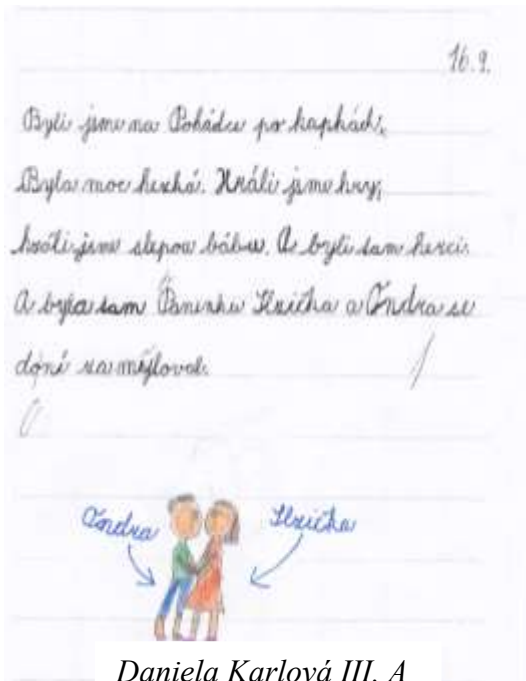 16.9.
Byli jsme na Pohádce po kapkách.
Byla moc hezká. Hráli jsme hry,
hráli jsme slepou bábu. A byli tam herci.
A byla tam Panenka Slzička a Ondra se
doní
Ondra Slzička
Daniela Karlová III. A